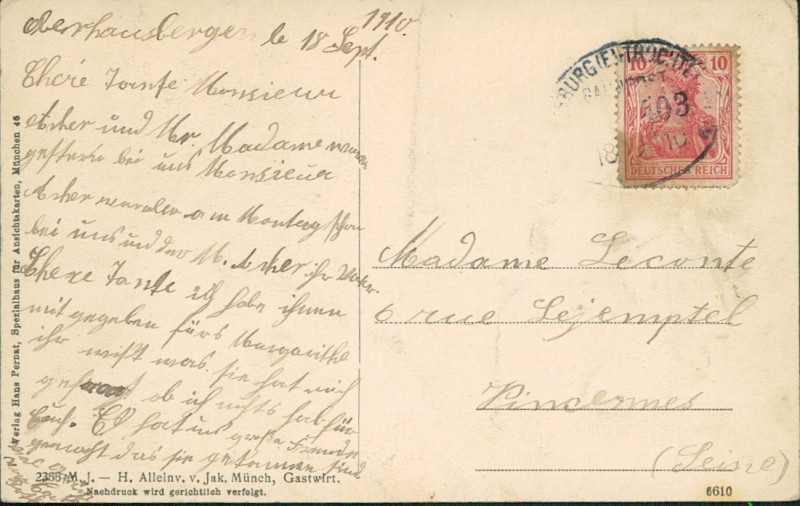 Oberhausbergen le 18 Sept. 1910.
Chère Tante Monsieur
Ascher und Mr. Madame waren
gestern bei uns Monsieur
Ascher war am Montag schon
bei uns und der M. Ascher ihr Vater.
Chere Tante ich habe ihnen
mit gegeben fürs Margarithe
ihr wisst was. sie hat mich
gefragt ob ich nichts hab für
Euch. Es hat uns große Freude
gemacht das sie gekommen sind.
Verlag Hans Pernat, Spezialhaus für Ansichtskarten, München 46
2356 M. J. — H. Alleinv. v. Jak. Münch, Gastwirt.
Nachdruck wird gerichtlich verfolgt.
10 10
DEUTSCHES REICH
BAHNPOST
Madame Leconte
6 rue Lejemptel
Vincennes
(Seine)
6610